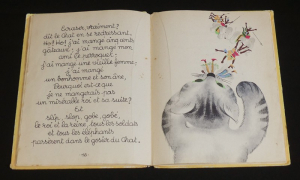 Ecraser, vraiment?
dit le Chat en se redressant,
Ho! Ho! j'ai mangé cinq cents
gâteaux; j'ai mangé mon
ami le perroquet;
j'ai mangé une vieille femme;
j'ai mangé
un bonhomme et son âne,
Pourquoi est-ce que
je ne mangerais pas
un misérable roi et sa suite?
Et
slip, slop, gobe, gobe,
le roi et la reine, tous les soldats
et tous les éléphants
passèrent dans le gosier du Chat.